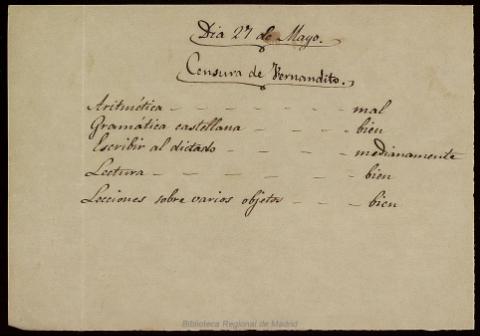 Dia 27 de Mayo.
Censura de Fernandito.
Aritmética - - - - - - - mal
Gramática castellana - - - - bien
Escribir al dictado - - - - - medianamente
Lectura - - - - - - - - bien
Lecciones sobre varios objetos - - - bien
Biblioteca Regional de Madrid